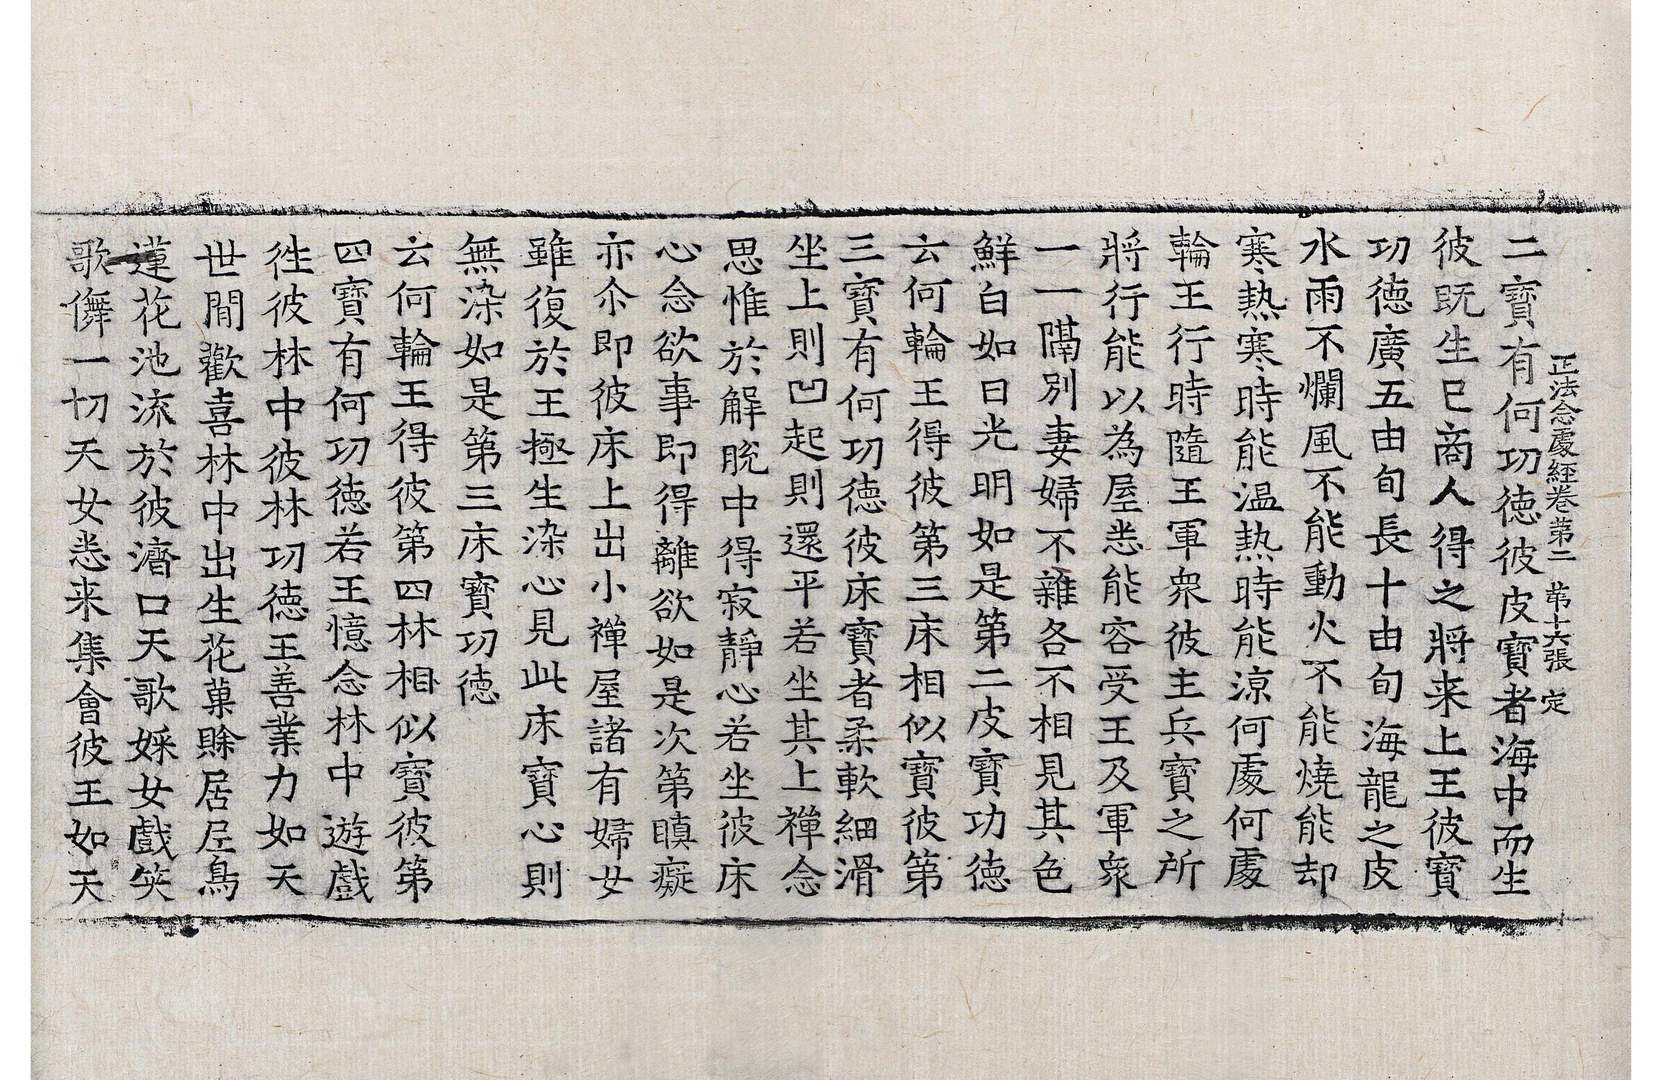 二寶有何功德彼皮寶者海中而生
正法念處經卷第二　第十六張　定
彼既生已商人得之將来上王彼寶
功德廣五由旬長十由旬海龍之皮
水雨不爛風不能動火不能燒能却
寒熱寒時能温熱時能涼何處何處
輪王行時隨王軍衆彼主兵寶之所
將行能以為屋悉能容受王及軍衆
一一隔別妻婦不雜各不相見其色
鮮白如日光明如是第二皮寶功德
云何輪王得彼第三床相似寶彼第
三寶有何功德彼床寶者柔軟細滑
坐上則凹起則還平若坐其上禪念
思惟於解脫中得寂靜心若坐彼床
心念欲事即得離欲如是次第瞋癡
亦尒即彼床上出小禪屋諸有婦女
雖復於王極生染心見此床寶心則
無染如是第三床寶功德
云何輪王得彼第四林相似寶彼第
四寶有何功德若王憶念林中遊戲
徃彼林中彼林功德王善業力如天
世間歡喜林中出生花菓賖居㞐鳥
蓮花池流於彼濟口天歌婇女戲笑
歌儛一切天女悉来集會彼王如天